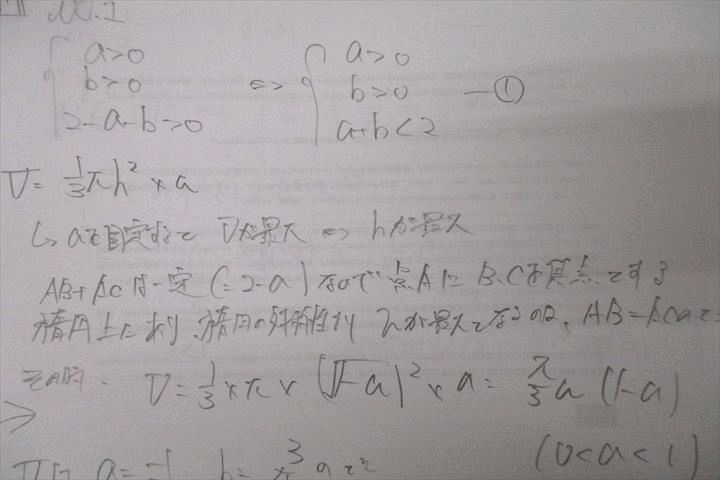 No.1
a>0 a>0
b>0 ⇔ b>0 —①
2-a-b>0 a+b<2
V= 1/3 πh² × a
↳ aを固定すると Vが最大 ⇔ hが最大
AB+ACは一定(=2-a)なので点AはB,Cを焦点とする
楕円上にあり、楕円の対称性より hが最大となるのは、AB=ACのとき
その時、V= 1/3 ×π× (√1-a)² ×a= π/3 a (1-a)
(0<a<1)
a= b=